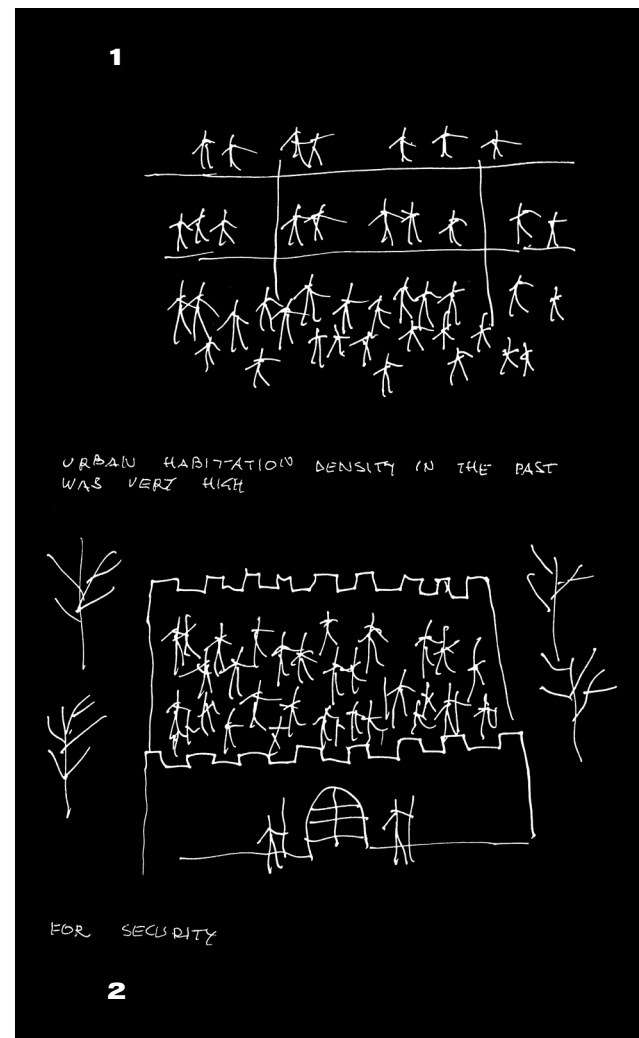 1
URBAN HABITATION DENSITY IN THE PAST
WAS VERY HIGH
FOR SECURITY
2